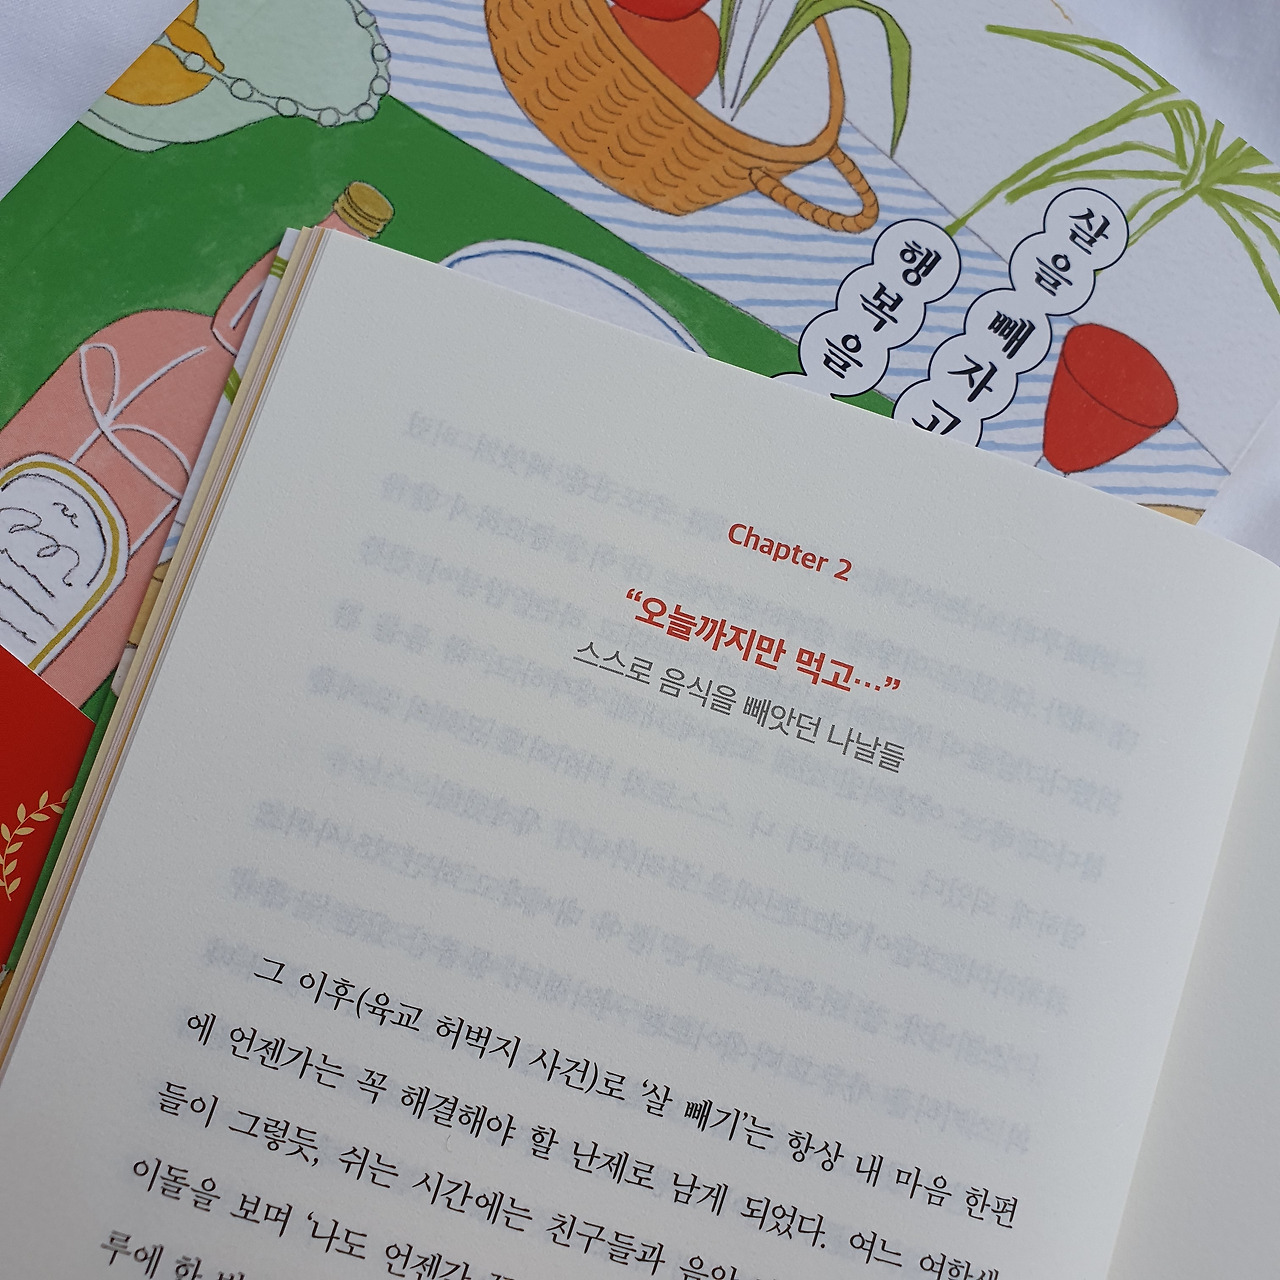 살을 빼자고
행복을
Chapter 2
“오늘까지만 먹고…”
스스로 음식을 빼앗던 나날들
그 이후(육교 허벅지 사건)로 ‘살 빼기’는 항상 내 마음 한편
에 언젠가는 꼭 해결해야 할 난제로 남게 되었다. 여느 여학생
들이 그렇듯, 쉬는 시간에는 친구들과 음악
이돌을 보며 ‘나도 언젠가
루에 한